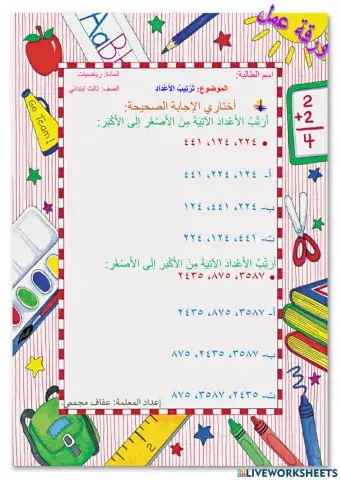 ورقة عمل
اسم الطالبة: المادة: رياضيات
الموضوع: تَرْتيبُ الأَعْدَاد الصف: ثالث ابتدائي
أختاري الإجابة الصحيحة:
أُرَتِّبُ الأَعْدَادَ الآتِيَةَ مِنَ الأَصْغَرِ إلَى الأَكْبَرِ:
٢٢٤، ١٢٤، ٤٤١
أ- ١٢٤، ٢٢٤، ٤٤١
ب- ٢٢٤، ٤٤١، ١٢٤
ت- ٤٤١، ١٢٤، ٢٢٤
أُرَتِّبُ الأَعْدَادَ الآتِيَةَ مِنَ الأَكْبَرِ إلَى الأَصْغَرِ:
٣٥٨٧، ٨٧٥، ٢٤٣٥
أ- ٣٥٨٧، ٨٧٥، ٢٤٣٥
ب- ٣٥٨٧، ٢٤٣٥، ٨٧٥
ت- ٢٤٣٥، ٣٥٨٧، ٨٧٥
إعداد المعلمة: عفاف مجممي
Go Team!
2
+2
4
LIVEWORKSHEETS